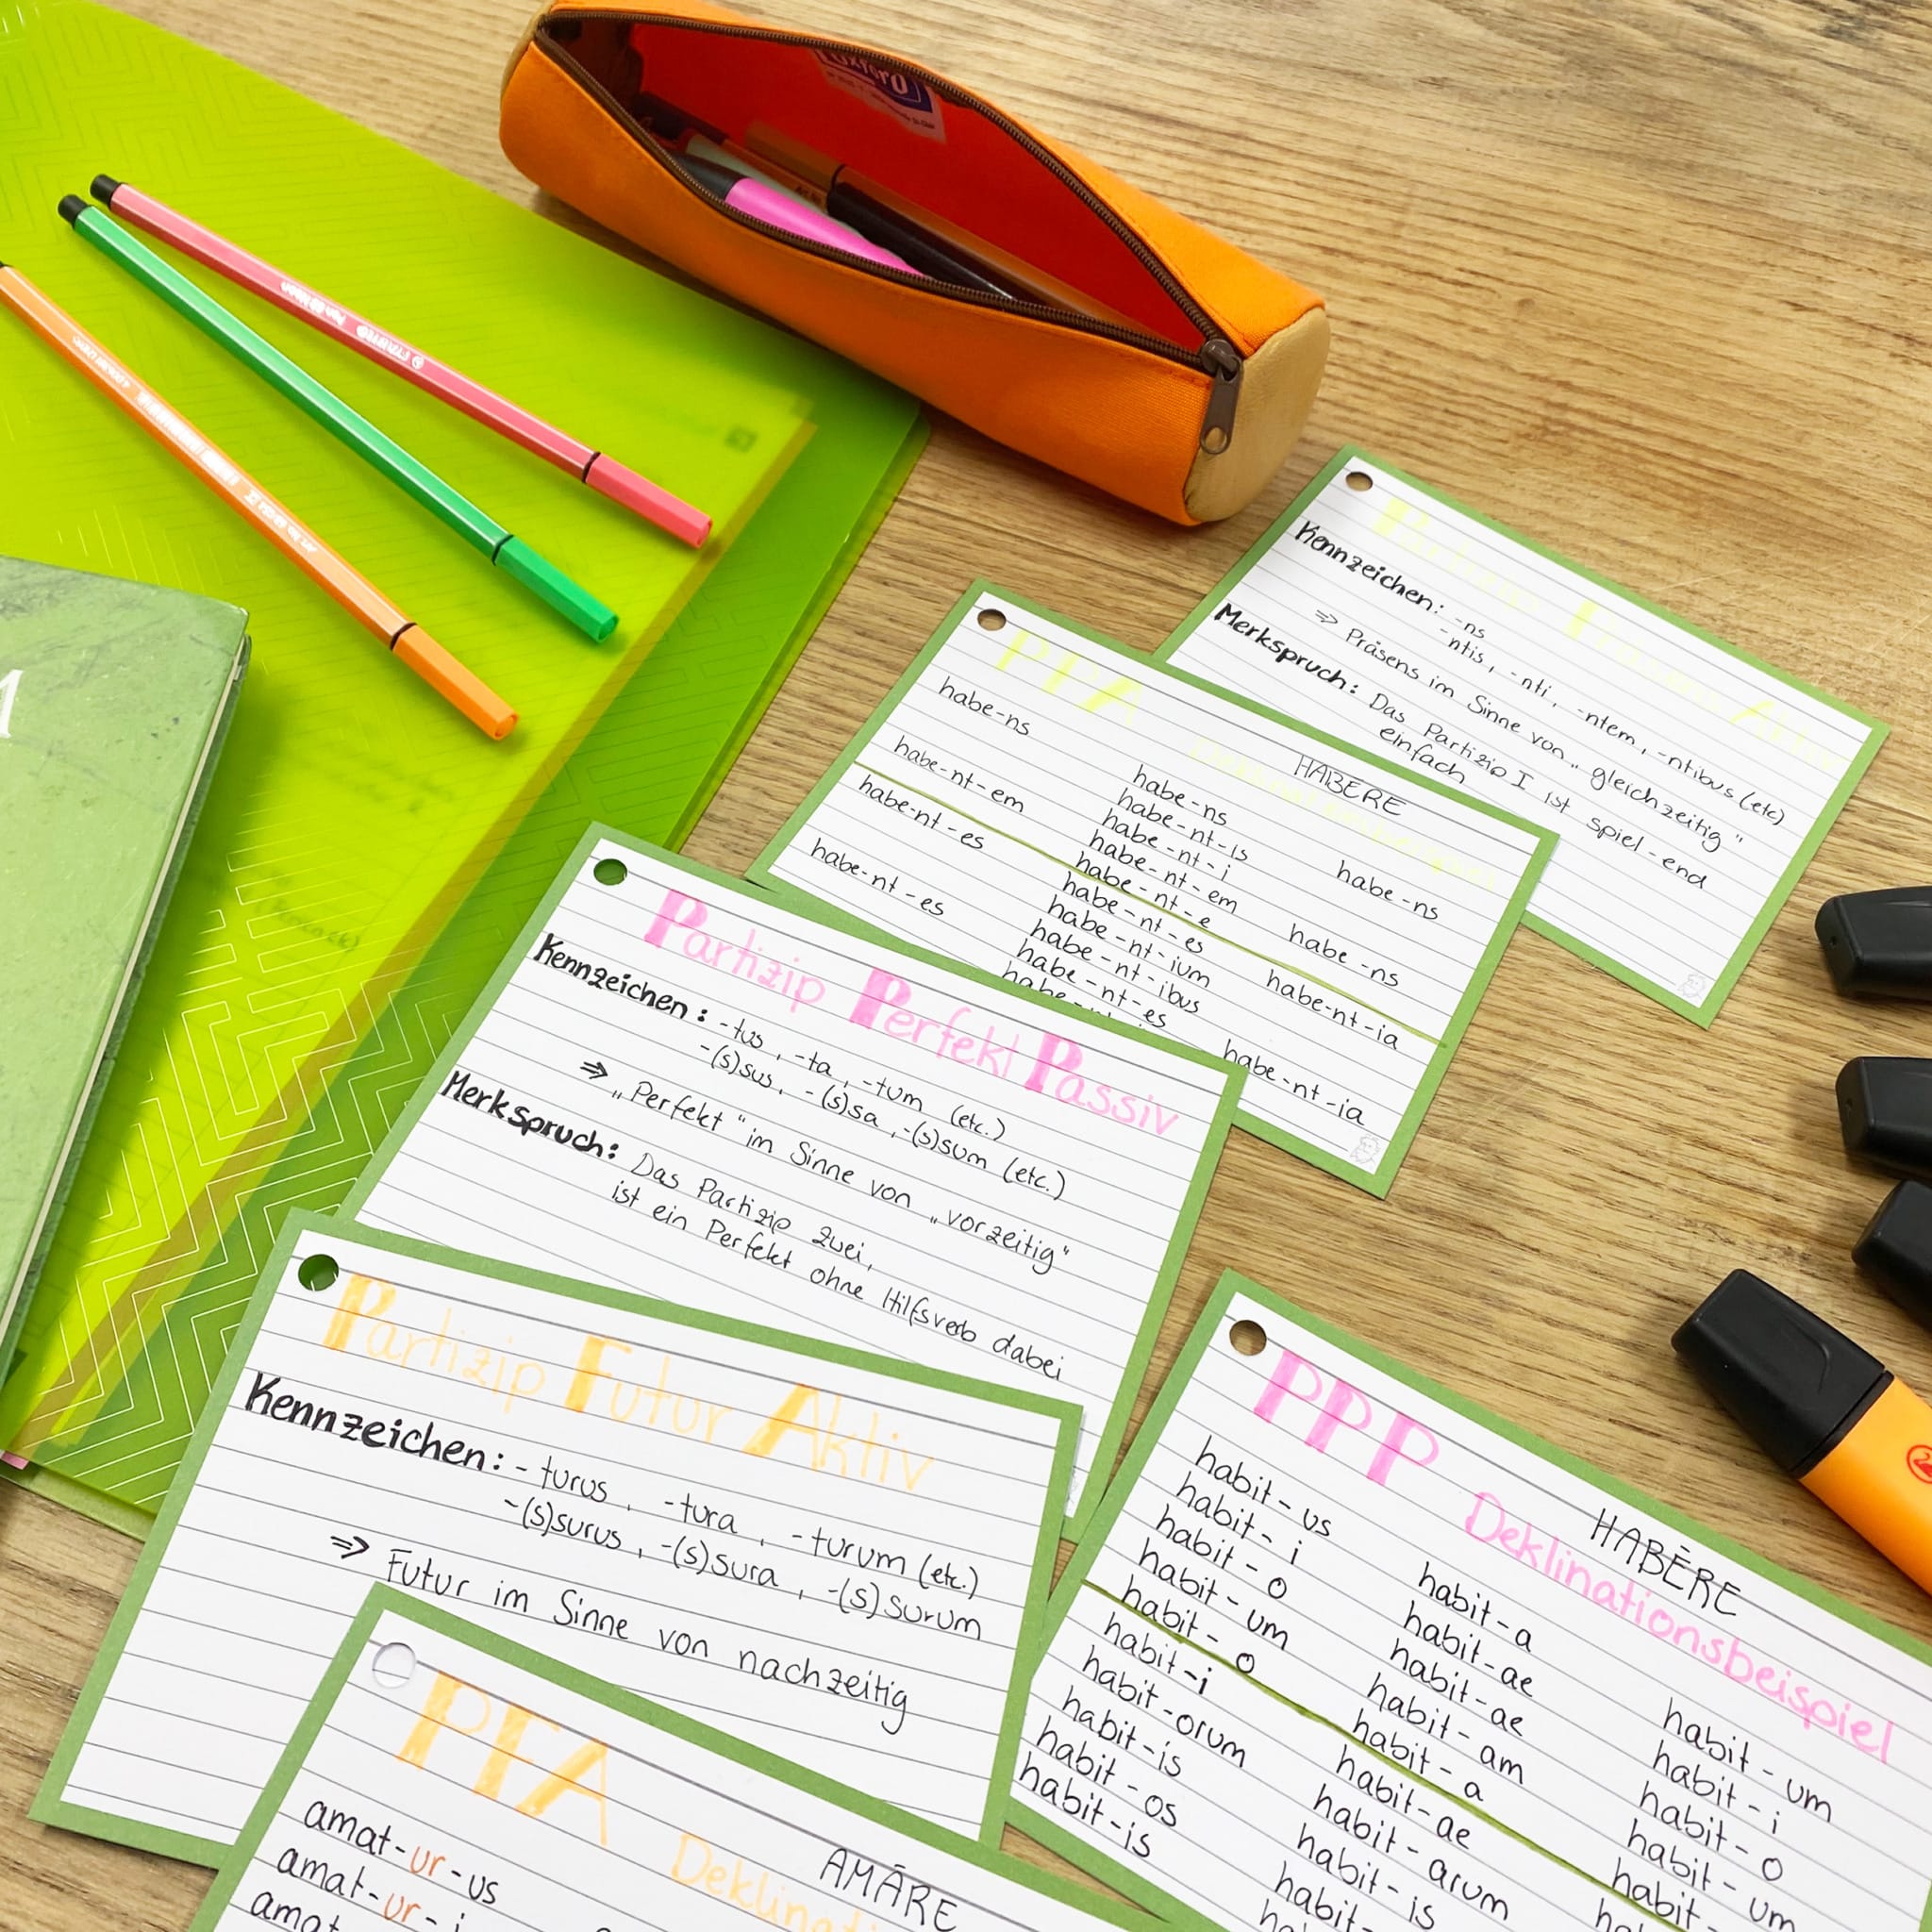 Oxford
STABILO
Partizip Präsens Aktiv
Kennzeichen: -ns
-ntis, -nti, -ntem, -ntibus (etc)
⇒ Präsens im Sinne von „gleichzeitig"
Merkspruch: Das Partizip I ist spiel-end
einfach
PPA
HABERE
habe-ns
habe-nt-em
habe-nt-es
habe-nt-es
habe-ns
habe-nt-is
habe-nt-i
habe-nt-em
habe-nt-e
habe-nt-es
habe-nt-ium
habe-nt-ibus
habe-nt-es
habe-ns
habe-ns
habe-nt-ia
habe-nt-ia
Partizip Perfekt Passiv
Kennzeichen: -tus, -ta, -tum (etc.)
-(s)sus, -(s)sa, -(s)sum (etc.)
⇒ „Perfekt" im Sinne von „vorzeitig"
Merkspruch: Das Partizip zwei,
ist ein Perfekt ohne Hilfsverb dabei
Partizip Futur Aktiv
Kennzeichen: -turus, -tura, -turum (etc.)
-(s)surus, -(s)sura, -(s)surum
⇒ Futur im Sinne von nachzeitig
PPP
HABĒRE
Deklinationsbeispiel
habit-us
habit-i
habit-o
habit-um
habit-o
habit-i
habit-orum
habit-is
habit-os
habit-is
habit-a
habit-ae
habit-ae
habit-am
habit-a
habit-ae
habit-arum
habit-is
habit-
habit-um
habit-i
habit-o
habit-um
habit-
PFA
AMĀRE
amat-ur-us
amat-ur-i